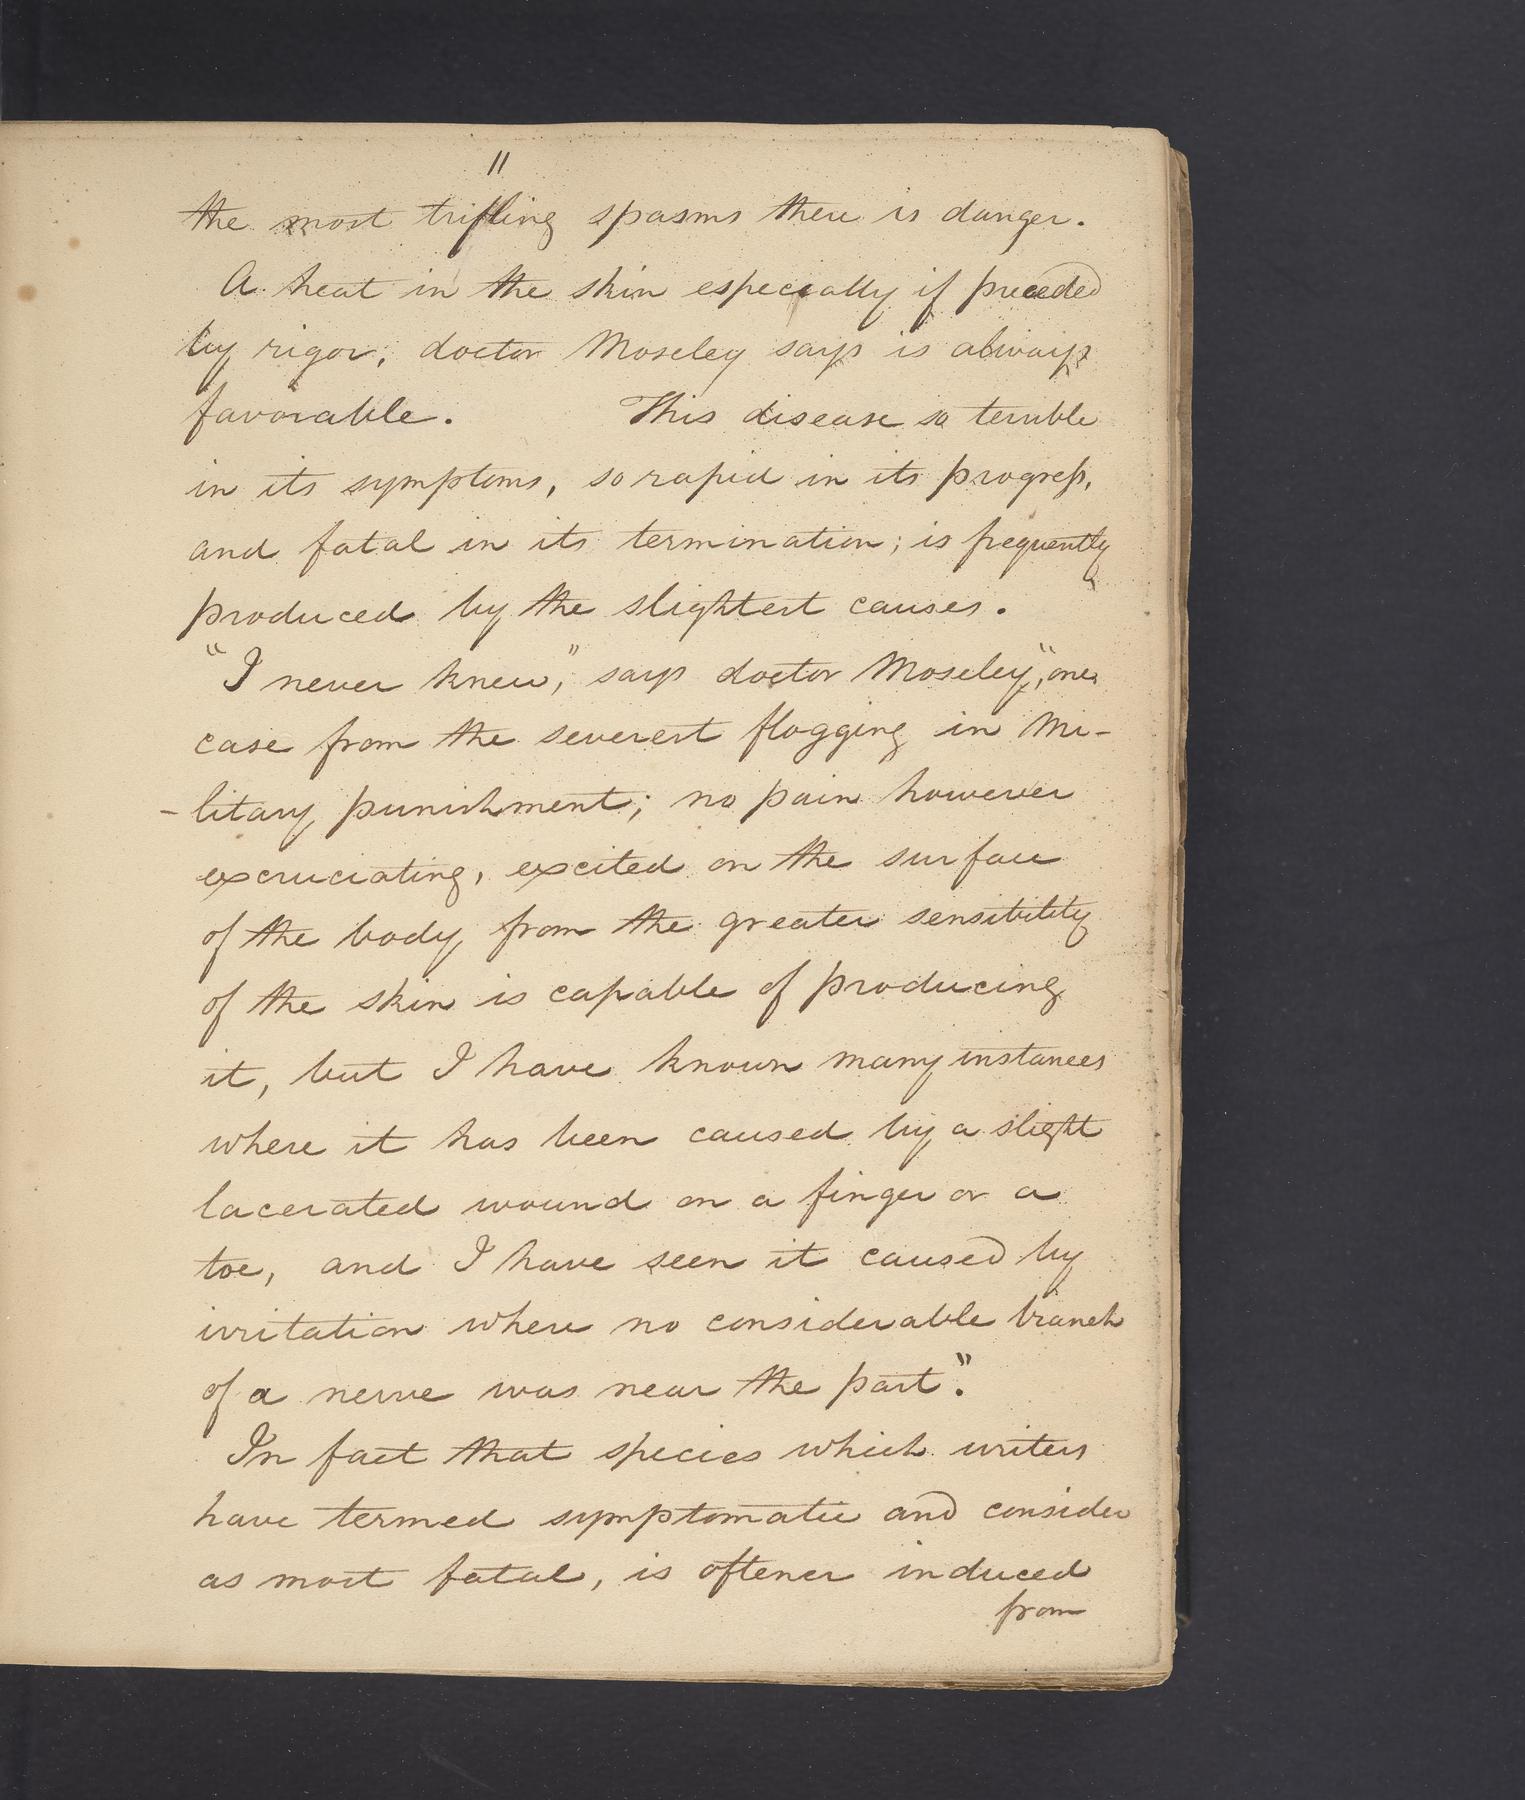 11
the most trifling spasms there is danger.
A heat in the skin especially if preceded
by rigor, doctor Moseley says is always
favorable. This disease so terrible
in its symptoms, so rapid in its progress,
and fatal in its termination; is frequently
produced by the slightest causes.
"I never knew," says doctor Moseley, "one
case from the severest flogging in Mi-
-litary punishment; no pain however
excruciating, excited on the surface
of the body from the greater sensibility
of the skin is capable of producing
it, but I have known many instances
where it has been caused by a slight
lacerated wound on a finger or a
toe, and I have seen it caused by
irritation where no considerable branch
of a nerve was near the part".
In fact that species which writers
have termed symptomatic and consider
as most fatal, is oftener induced
from